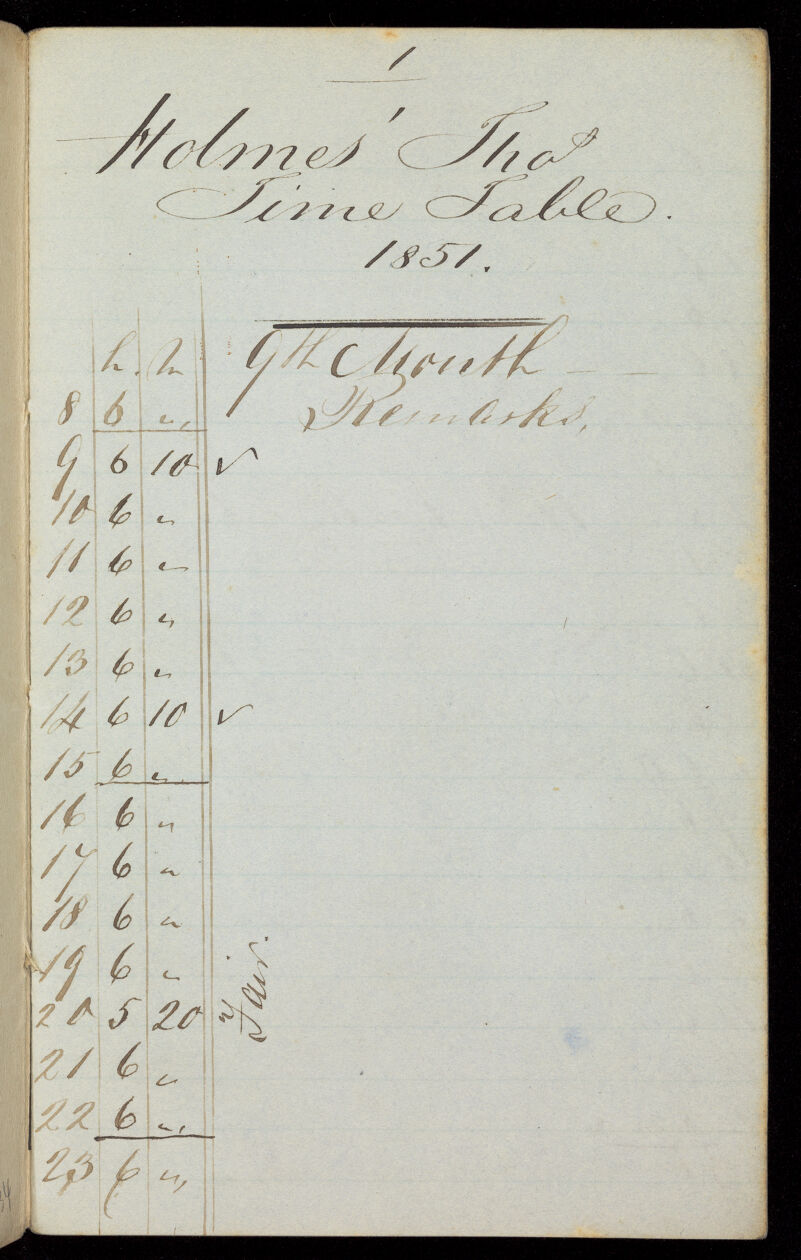 1
Holmes' Thos
Time Table.
1851.
h. m 9th Month
8 6 " Remarks.
9 6 10 ✓
10 6 "
11 6 "
12 6 "
13 6 "
14 6 10 ✓
15 6 "
16 6 "
17 6 "
18 6 "
19 6 "
20 5 20 " Fair.
21 6 "
22 6 "
23 6 "